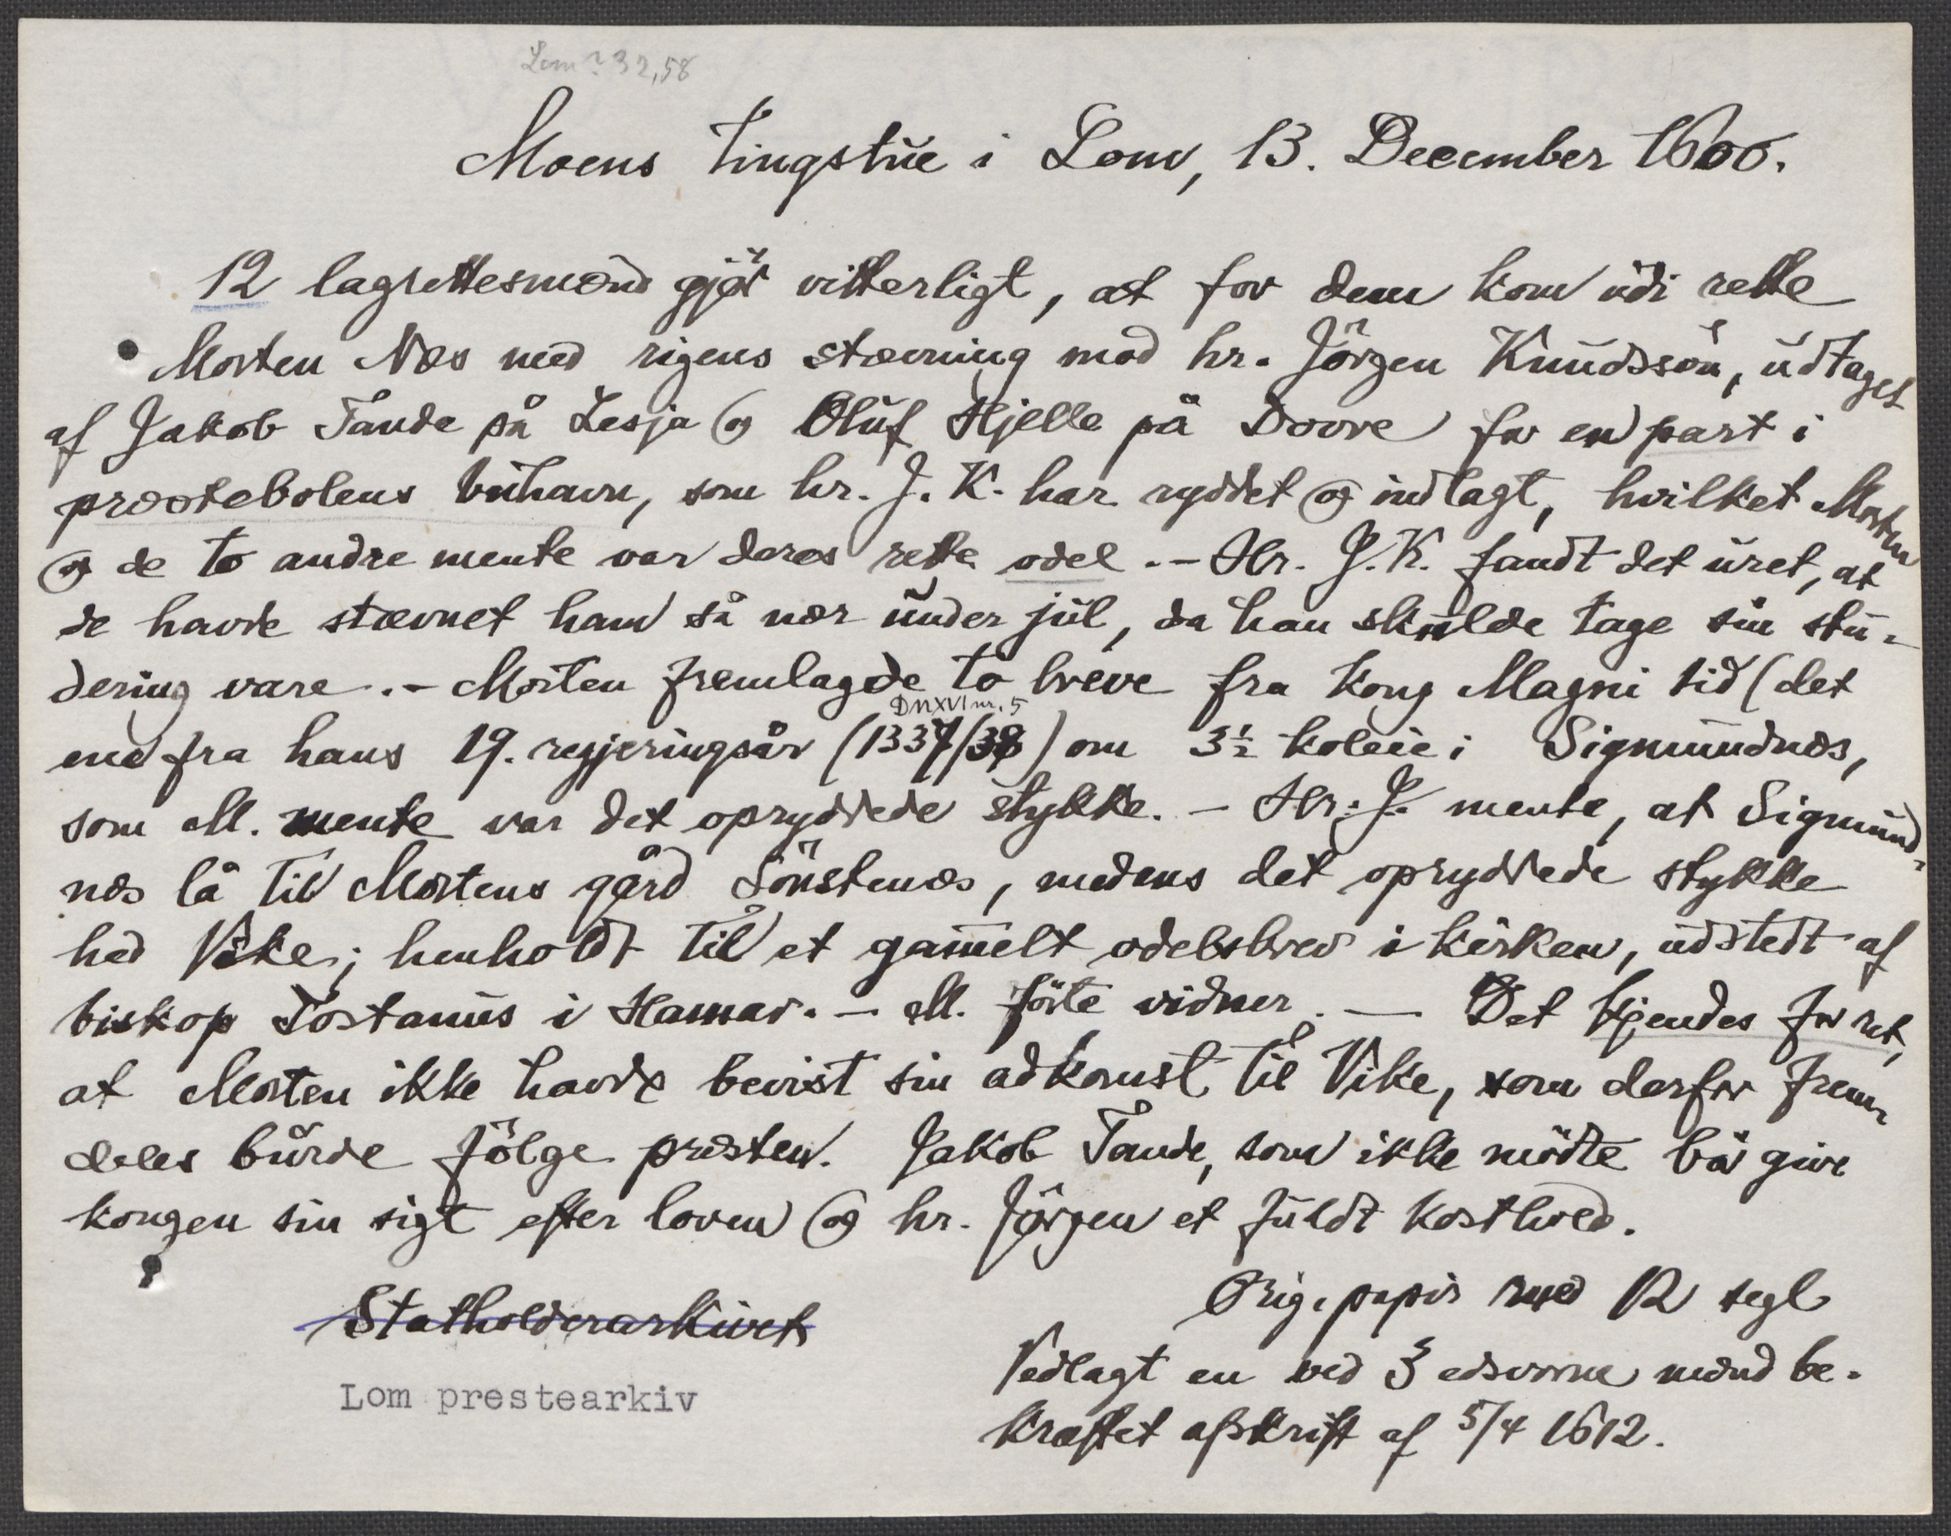 Lom? 32,58
Moens Tingstue i Lom, 13. December 1600.
12 lagrettesmænd gjör vitterligt, at for dem kom udi rette
Morten Næs med rigens stævning mod hr. Jörgen Knudssön, udtaget
af Jakob Tande på Lesja og Oluf Hjelle på Dovre for en part i
præstebolens buhavn, som hr. J. K. har ryddet og indtagt, hvilket Morten
og de to andre mente var deres rette odel. - Hr. J. K. fandt det uret, at
de havde stævnet ham så nær under jul, da han skulde tage sin stu-
dering vare. - Morten fremlagde to breve fra Kong Magni tid (det
DN XVI nr. 5
ene fra hans 19. regjeringsår (1337/38) om 3½ koleie i Sigmundnæs,
som M. mente var det opryddede stykke. - Hr. J. mente, at Sigmund-
næs lå til Mortens gård Sönstenæs, medens det opryddede stykke
hed Vike; henholdt til et gam̄elt odelsbrev i kirken, udstedt af
biskop Tostanus i Hamar. - M. förte vidner. - Det kjendes for ret,
at Morten ikke havde bevist sin adkomst til Vike, som derfor frem-
deles burde fölge præsten. Jakob Tande, som ikke mödte bör give
kongen sin sigt efter loven og hr. Jörgen et fuldt kosthold.
Orig. papir med 12 segl
Statholderarkivet
Vedlagt en ved 3 edsvorne mænd be-
Lom prestearkiv
kræftet afskrift af 5/4 1612.